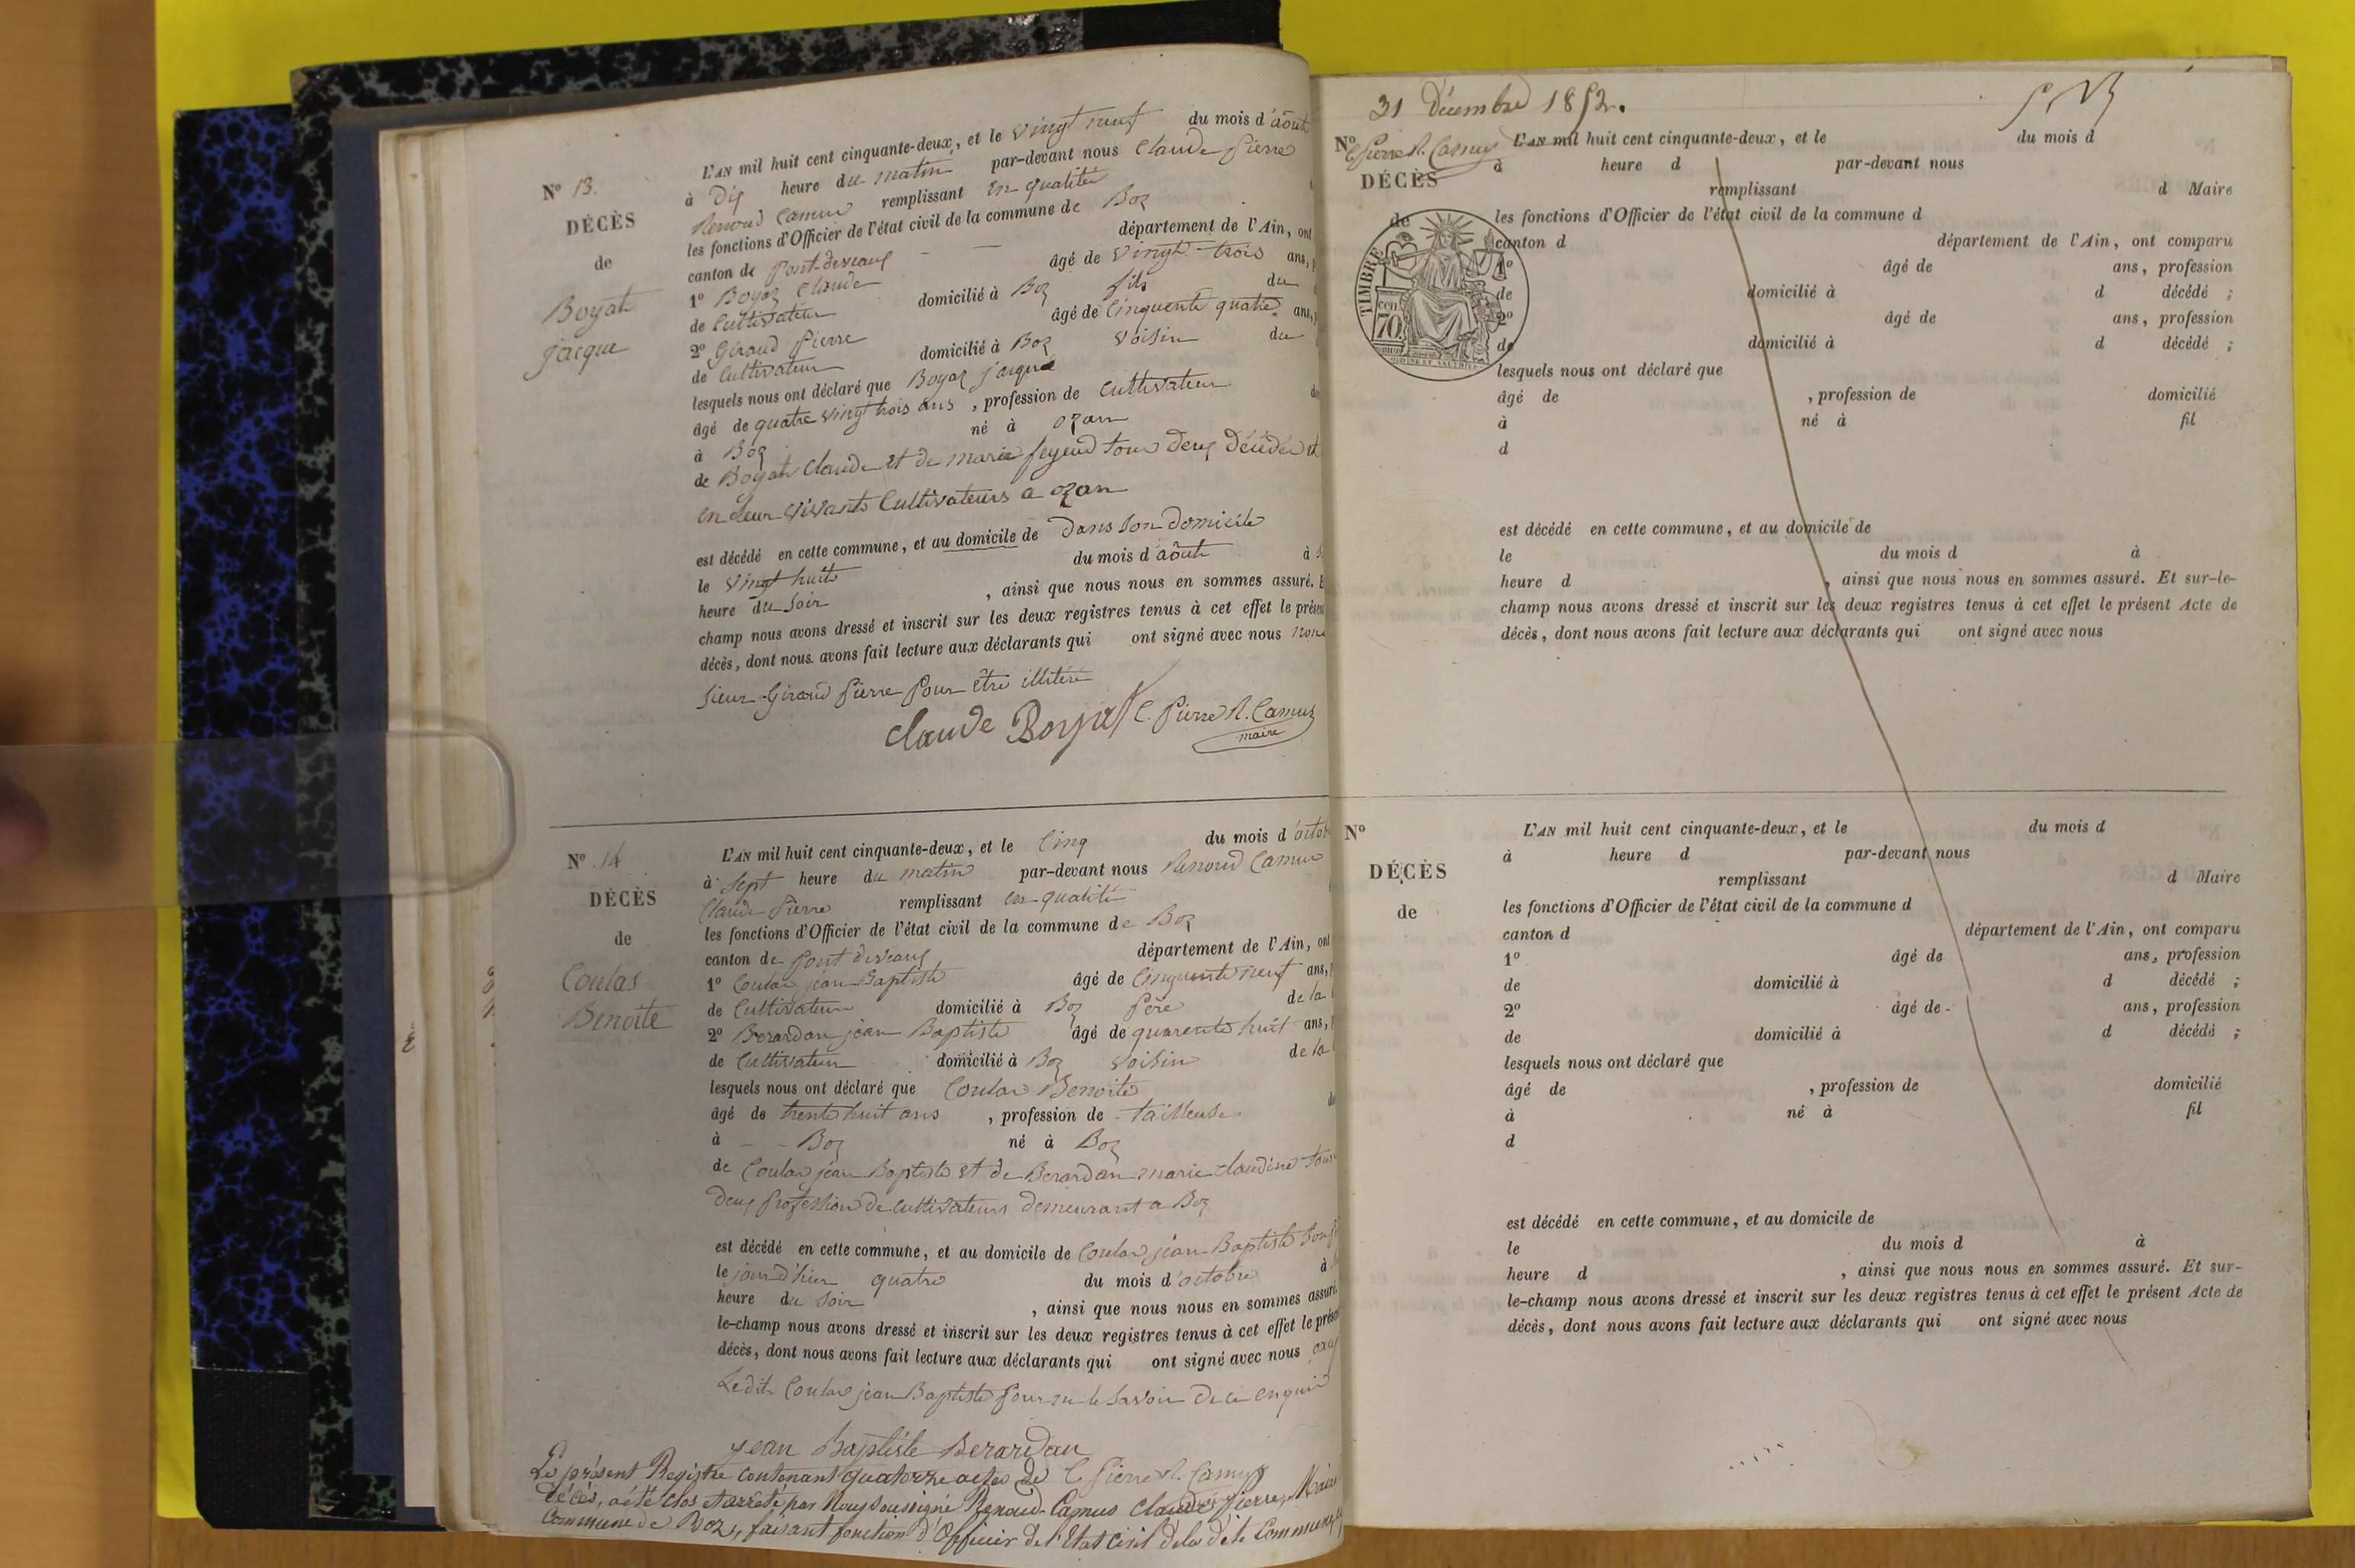 N° 13.
DÉCÈS
de
Boyat
jacque
L'AN mil huit cent cinquante-deux, et le vingt neuf du mois d'août
à dix heure du matin par-devant nous Claude Pierre
Renoud Camus remplissant en qualité
les fonctions d'Officier de l'état civil de la commune de Boz
canton de pont-devaux département de l'Ain, ont
1° Boyaz Claude âgé de vingt-trois ans,
de Cultivateur domicilié à Boz fils du
2° Giraud Pierre âgé de Cinquente quatre ans,
de Cultivateur domicilié à Boz voisin du
lesquels nous ont déclaré que Boyaz jacque
âgé de quatre vingt trois ans, profession de Cultivateur
à Boz né à ozan
de Boyat Claude et de marie feyeud tous deux décédés et
en leur vivants Cultivateurs a ozan
est décédé en cette commune, et au domicile de Dans son domicile
le vingt huit du mois d'août à
heure du soir, ainsi que nous nous en sommes assuré.
champ nous avons dressé et inscrit sur les deux registres tenus à cet effet le présent
décès, dont nous avons fait lecture aux déclarants qui ont signé avec nous non
sieur Giraud Pierre pour être illitéré
Claude Boyat C. Pierre R. Camus
maire
N° 14
DÉCÈS
de
Coulas
Benoite
L'AN mil huit cent cinquante-deux, et le Cinq du mois d'octob
à sept heure du matin par-devant nous Renoud Camus
Claude Pierre remplissant en qualité
les fonctions d'Officier de l'état civil de la commune de Boz
canton de Pont devaux département de l'Ain, ont
1° Coulas jean Baptiste âgé de Cinquente neuf ans,
de Cultivateur domicilié à Boz Père de la
2° Berardan jean Baptiste âgé de quarente huit ans,
de Cultivateur domicilié à Boz voisin de la
lesquels nous ont déclaré que Coulas Benoite
âgé de trente huit ans, profession de tailleuse
à - - Boz né à Boz
de Coulas jean Baptiste et de Berardan marie claudine tous
deux profession de Cultivateurs demeurant a Boz
est décédé en cette commune, et au domicile de Coulas jean Baptiste son
le jour d'hier quatre du mois d'octobre à
heure du soir, ainsi que nous nous en sommes assuré.
le-champ nous avons dressé et inscrit sur les deux registres tenus à cet effet le présen
décès, dont nous avons fait lecture aux déclarants qui ont signé avec nous
Ledit Coulas jean Baptiste pour ne le savoir de ce enquis
jean Baptiste Berardan
C Pierre R. Camus
Le présent Registre contenant quatorze actes de
décès, a été clos et arrêté par Nous soussigné Renoud-Camus Claude Pierre, Maire
Commune de Boz, faisant fonction d'Officier de l'Etat Civil de la dite Commune
31 Décembre 1852.
C. Pierre R. Camus
N°
DÉCÈS
de
TIMBRE
CEN
70
L'AN mil huit cent cinquante-deux, et le du mois d
à heure d par-devant nous
remplissant d Maire
les fonctions d'Officier de l'état civil de la commune d
canton d département de l'Ain, ont comparu
1° âgé de ans, profession
de domicilié à d décédé ;
2° âgé de ans, profession
de domicilié à d décédé ;
lesquels nous ont déclaré que
âgé de , profession de domicilié
à né à fil
d
est décédé en cette commune, et au domicile de
le du mois d à
heure d , ainsi que nous nous en sommes assuré. Et sur-le-
champ nous avons dressé et inscrit sur les deux registres tenus à cet effet le présent Acte de
décès, dont nous avons fait lecture aux déclarants qui ont signé avec nous
N°
DÉCÈS
de
L'AN mil huit cent cinquante-deux, et le du mois d
à heure d par-devant nous
remplissant d Maire
les fonctions d'Officier de l'état civil de la commune d
canton d département de l'Ain, ont comparu
1° âgé de ans, profession
de domicilié à d décédé ;
2° âgé de ans, profession
de domicilié à d décédé ;
lesquels nous ont déclaré que
âgé de , profession de domicilié
à né à fil
d
est décédé en cette commune, et au domicile de
le du mois d à
heure d , ainsi que nous nous en sommes assuré. Et sur-
le-champ nous avons dressé et inscrit sur les deux registres tenus à cet effet le présent Acte de
décès, dont nous avons fait lecture aux déclarants qui ont signé avec nous